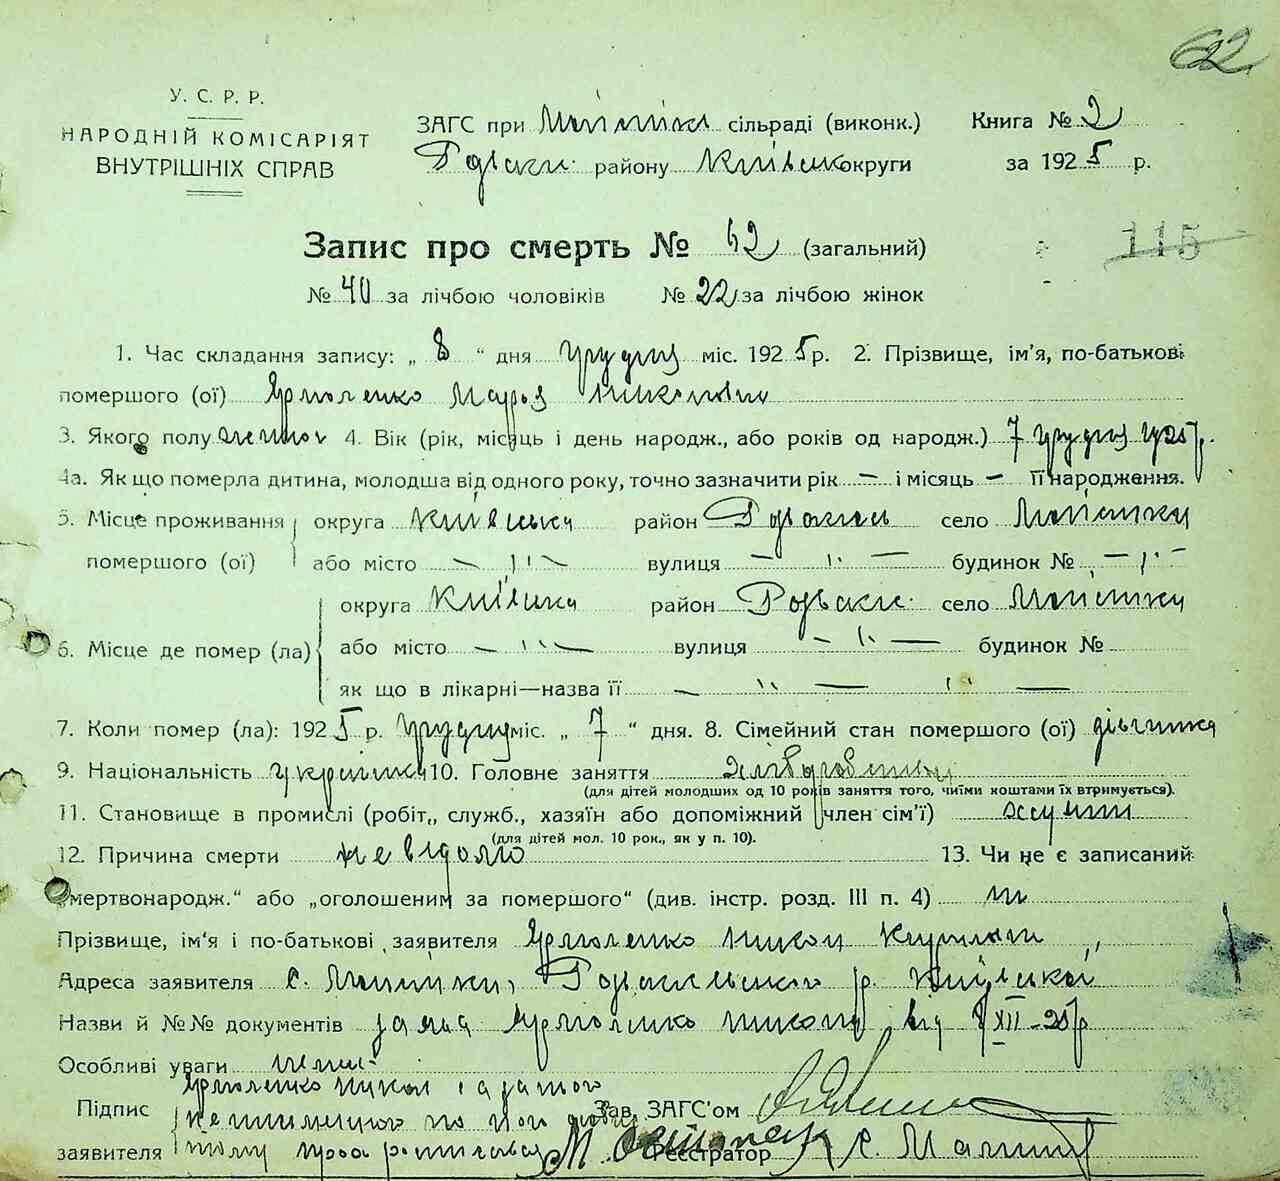 62
У. С. Р. Р.
НАРОДНІЙ КОМІСАРІЯТ
ВНУТРІШНІХ СПРАВ
ЗАГС при сільраді (виконк.) Книга № 2
району Київськ округи за 1925 р.
Запис про смерть № 62 (загальний)
115
№ 40 за лічбою чоловіків № 22 за лічбою жінок
1. Час складання запису: „ 8 “ дня грудня міс. 1925 р. 2. Прізвище, ім'я, по-батькові
помершого (ої) Ярмоленко Мария
3. Якого полу 4. Вік (рік, місяць і день народж., або років од народж.) 7 грудня 1925 р.
4а. Як що померла дитина, молодша від одного року, точно зазначити рік — і місяць — її народження.
5. Місце проживання округа Київська район село
помершого (ої) або місто — " — вулиця — " — будинок № — " —
округа Київська район село
6. Місце де помер (ла) або місто — " — вулиця — " — будинок №
як що в лікарні—назва її — " — " —
7. Коли помер (ла): 1925 р. грудня міс. „ 7 “ дня. 8. Сімейний стан помершого (ої) дівчинка
9. Національність українка 10. Головне заняття
(для дітей молодших од 10 років заняття того, чиїми коштами їх втримується).
11. Становище в промислі (робіт., служб., хазяїн або допоміжний член сім'ї)
(для дітей мол. 10 рок., як у п. 10).
12. Причина смерти не відомо 13. Чи не є записаний
„мертвонародж.“ або „оголошеним за помершого“ (див. інстр. розд. III п. 4) ні
Прізвище, ім'я і по-батькові заявителя Ярмоленко Никон
Адреса заявителя с. р. Київської
Назви й №№ документів заява Ярмоленко Никона від 8/XII-25 р
Особливі уваги немає
Ярмоленко Никон
Підпис Зав. ЗАГС'ом
заявителя тому Реєстратор